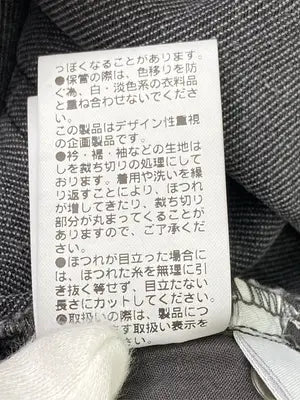 っぽくなることがあります。
●保管の際は、色移りを防
ぐ為、白・淡色系の衣料品
と重ね合わせないでくださ
い。
この製品はデザイン性重視
の企画製品です。
●衿・裾・袖などの生地は
しを裁ち切りの処理にして
おります。着用や洗いを繰
り返すことにより、ほつれ
が増してきたり、裁ち切り
部分が丸まってくることが
ありますので、ご了承くだ
さい。
●ほつれが目立った場合に
は、ほつれた糸を無理に引
き抜く等せず、目立たない
長さにカットしてください。
●取扱いの際は、製品につ
す取扱い表示を